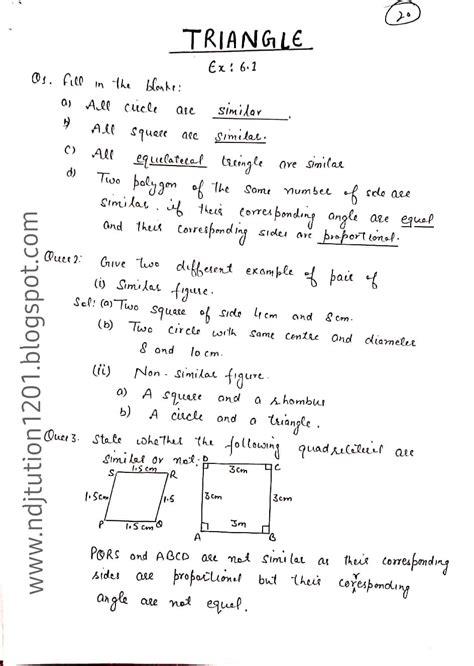 20
TRIANGLE
Ex: 6.1
Q1. Fill in the blanks:
a) All circle are similar.
b) All square are similar.
c) All equilateral triangle are similar
d) Two polygon of the same number of side are
similar. if their corresponding angle are equal
and their corresponding sides are proportional.
Ques 2: Give two different example of pair of
(i) Similar figure.
Sol: (a) Two square of side 4 cm and 8 cm.
(b) Two circle with same centre and diameter
8 and 10 cm.
(ii) Non-similar figure.
a) A square and a rhombus
b) A circle and a triangle.
Ques 3. State whether the following quadrilateral are
similar or not:
S 1.5cm R
1.5cm 1.5
P 1.5cm Q
D 3cm C
3cm 3cm
3m
A B
PQRS and ABCD are not similar as their corresponding
sides are proportional but their corresponding
angle are not equal.
www.ndjtution1201.blogspot.com